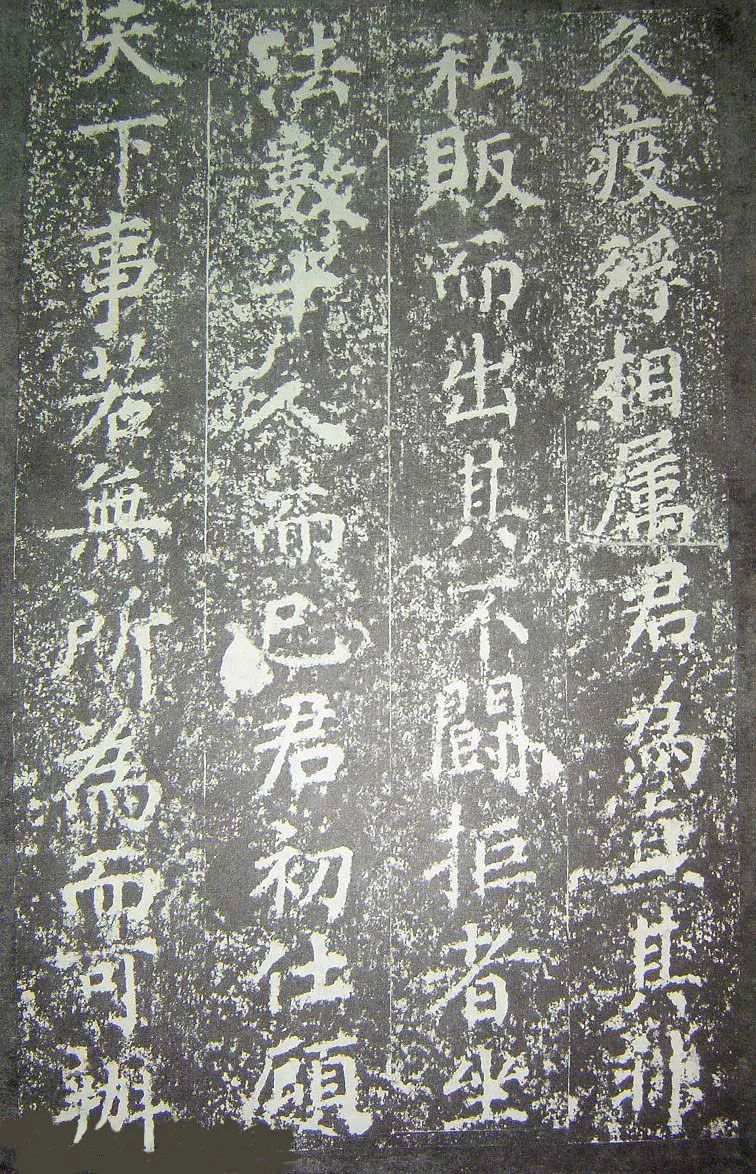 久疫殍相属君為直其非
私販而出其不鬪拒者坐
法數十人而已君初仕顧
天下事若無所為而可辦